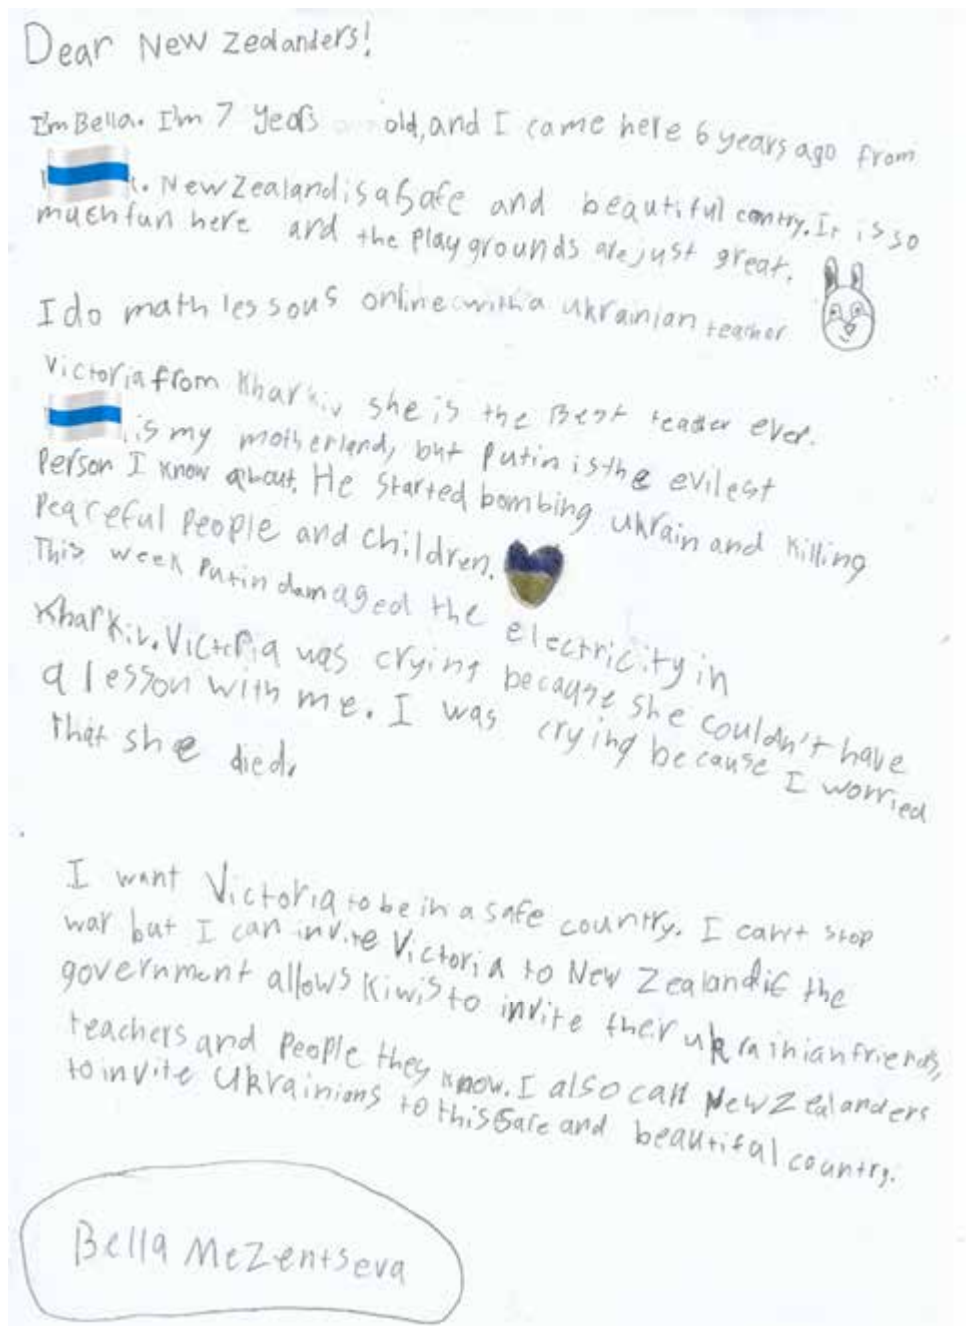 Dear New Zealanders!
I'm Bella. I'm 7 years old, and I came here 6 years ago from
. New Zealand is a safe and beautiful contry. It is so
much fun here and the playgrounds are just great.
I do math lessons online with a ukrainian teacher
Victoria from Kharkiv she is the Best teacher ever.
is my motherland, but Putin is the evilest
Person I know about. He started bombing ukrain and killing
Peaceful People and children.
This week Putin damaged the electricity in
Kharkiv. Victoria was crying because she couldn't have
a lesson with me. I was crying because I worried
that she died.
I want Victoria to be in a safe country. I can't stop
war but I can invite Victoria to New Zealand if the
government allows Kiwis to invite ther ukrainian friends,
teachers and People they know. I also call New Zealanders
to invite Ukrainians to this safe and beautiful country.
Bella Mezentseva